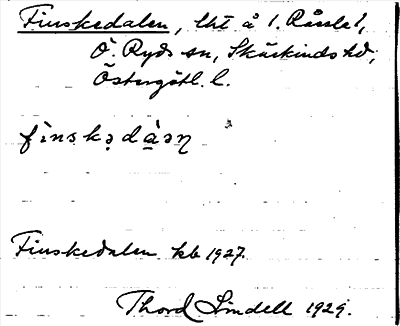 Finskedalen, lht å 1. Råssla!,
Ö. Ryds sn, Skärkinds hd,
Östergötl. l.
fìnskədàən
Finskedalen kb 1927.
Thord Lindell 1929.